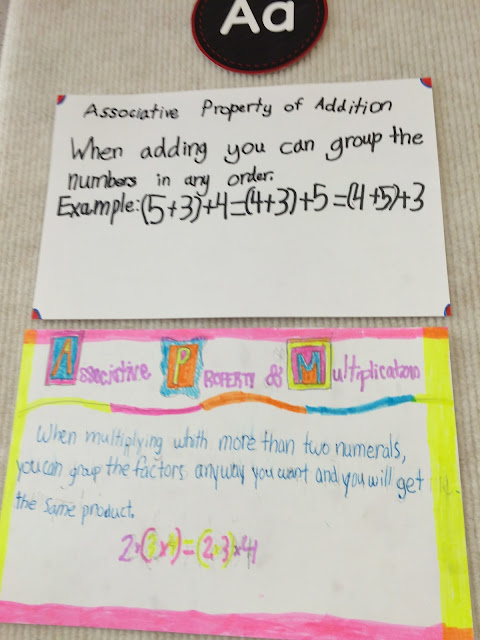 Aa
Associative Property of Addition
When adding you can group the
numbers in any order.
Example:(5+3)+4=(4+3)+5=(4+5)+3
Associative Property of Multiplication
When multiplying whith more than two numerals,
you can group the factors anyway you want and you will get
the same product.
2×(3×4)=(2×3)×4